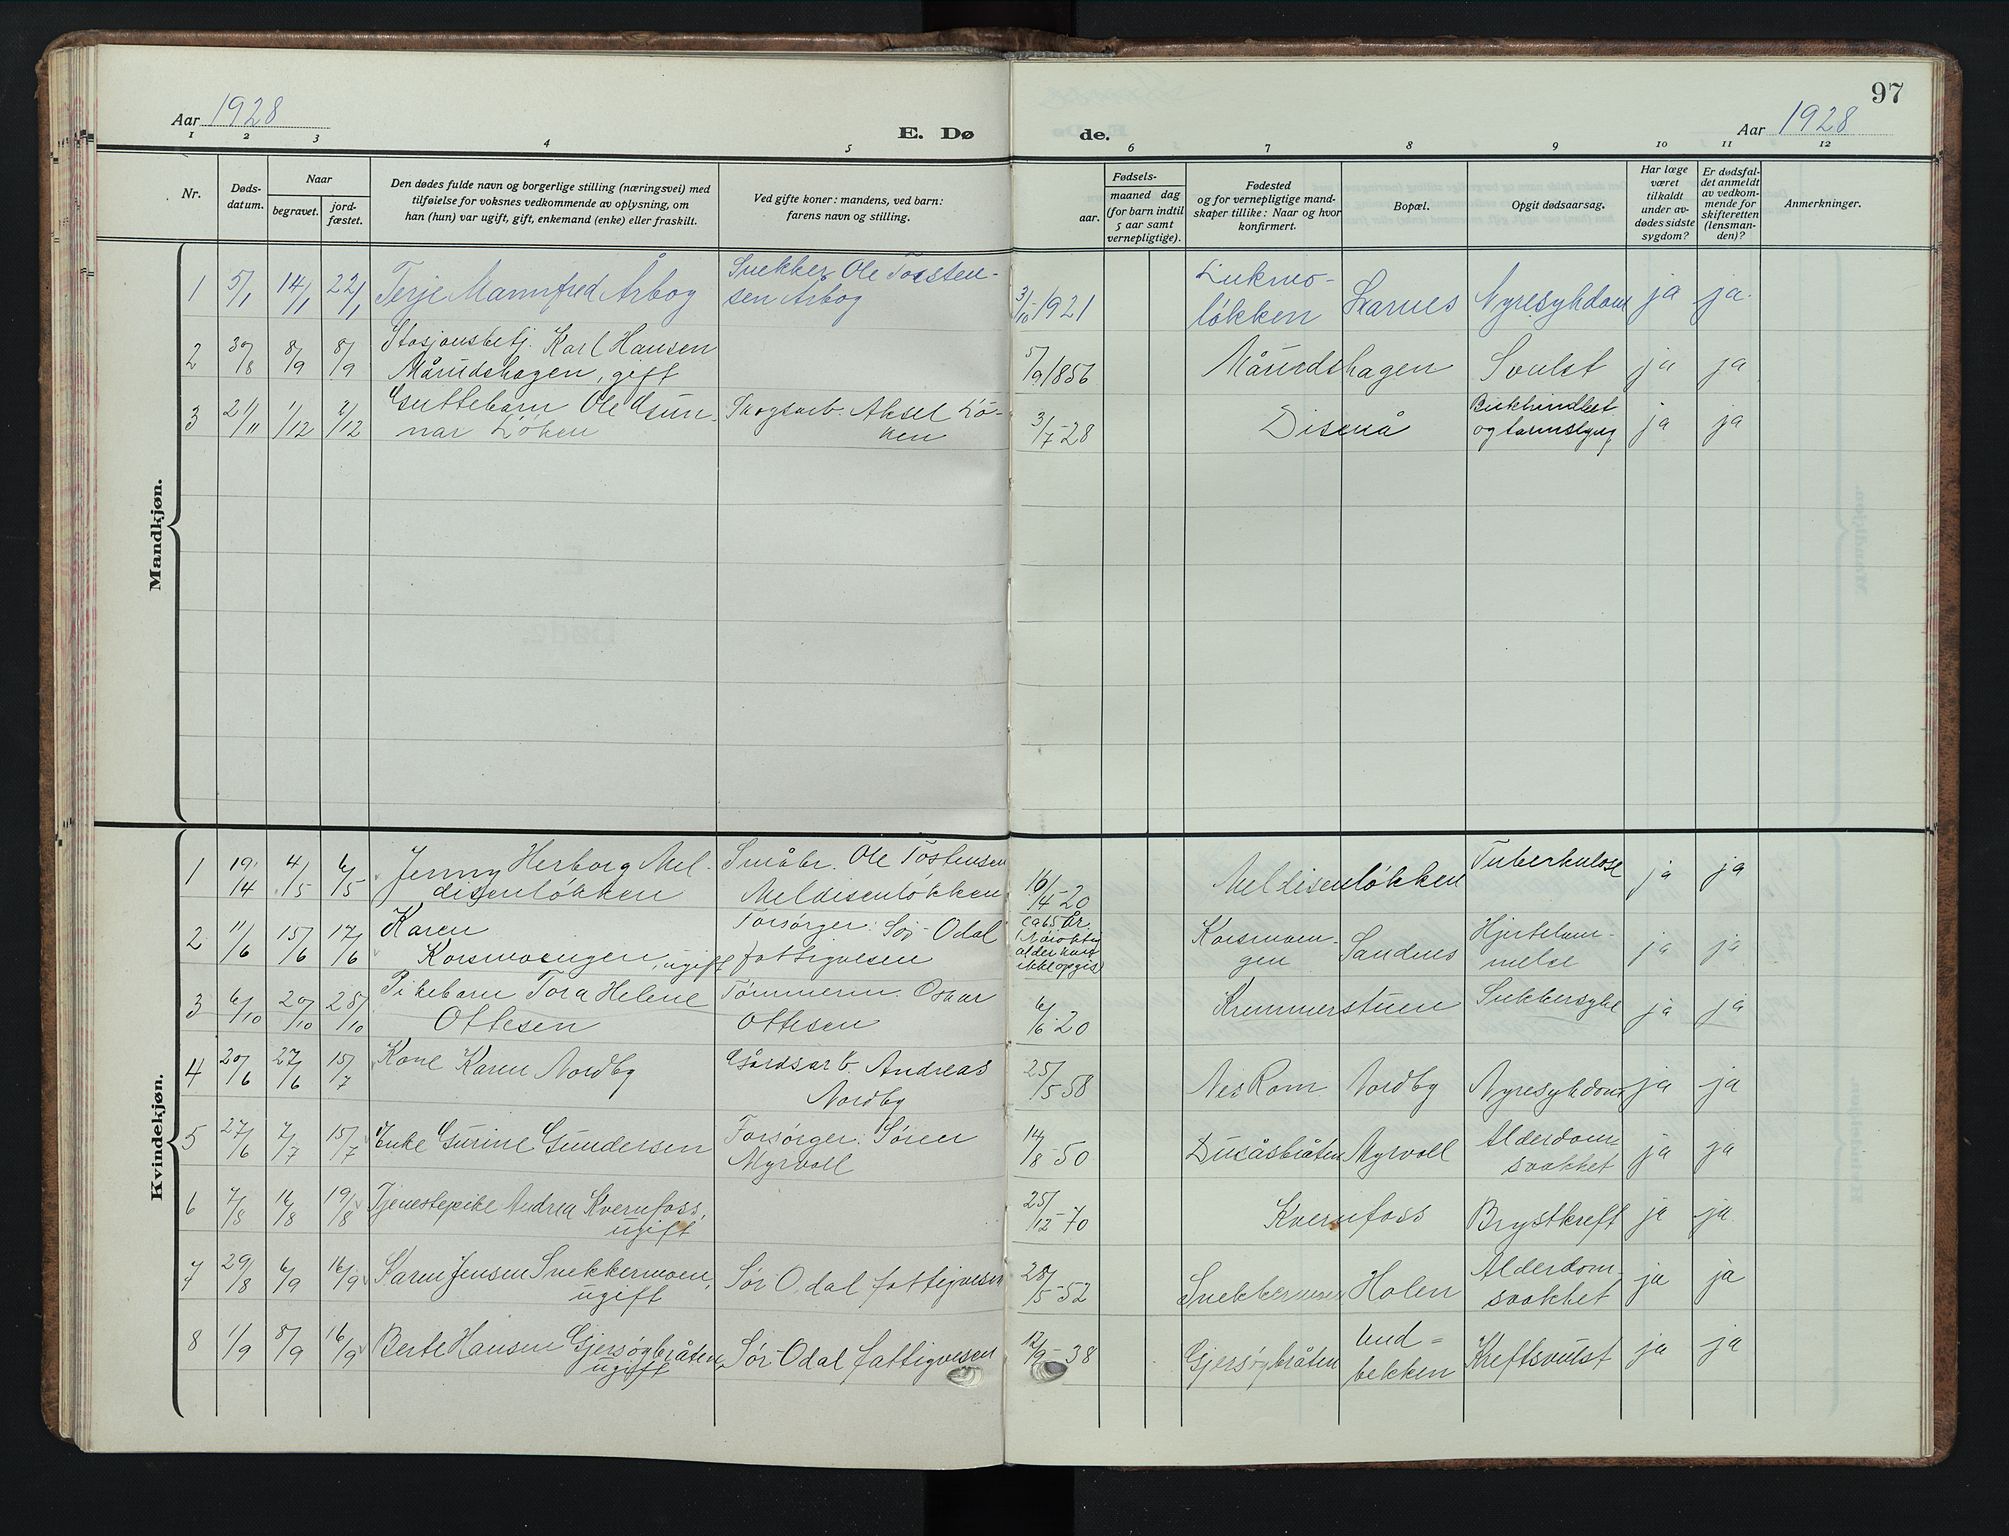 Aar 1928
E. Dø
de.
97
Aar 1928
1 2 3 4 5 6 7 8 9 10 11 12
Nr.
Døds-
datum.
Naar
begravet.
jord-
fæstet.
Den dødes fulde navn og borgerlige stilling (næringsvei) med
tilføielse for voksnes vedkommende av oplysning, om
han (hun) var ugift, gift, enkemand (enke) eller fraskilt.
Ved gifte koner: mandens, ved barn:
farens navn og stilling.
Fødsels-
aar.
maaned dag
(for barn indtil
5 aar samt
vernepligtige).
Fødested
og for vernepligtige mand-
skaper tillike: Naar og hvor
konfirmert.
Bopæl.
Opgit dødsaarsag.
Har læge
været
tilkaldt
under av-
dødes sidste
sygdom?
Er dødsfal-
det anmeldt
av vedkom-
mende for
skifteretten
(lensman-
den)?
Anmerkninger.
Mandkjøn.
1 5/1 14/1 22/1 Terje Mannfred Årbog
Snekker Ole Torsten-
sen Årbog
3/10-1921
Lukmo-
løkken
Skarnes
Nyresykdom
ja ja
2 30/8 8/9 8/9
Stasjonsbetj. Karl Hansen
Mårudshagen, gift
5/9 1856
Mårudshagen
Svulst
ja ja
3 21/11 1/12 2/12
Guttebarn Ole Gun-
nar Løken
Skogsarb. Aksel Lø-
ken
3/7-28
Disenå
Bukhindbet.
ja ja
Kvindekjøn.
1 19/14 4/5 6/5
Jenny Herborg Mel-
disenløkken
Småbr. Ole Tostensen
Meldisenløkken
16/14-20
Meldisenløkken
Tuberkulose
ja ja
2 11/6 15/6 17/6
Karen
Korsmoengen, ugift
Forsørger: Sør-Odal
fattigvesen
ca 65 år.
(Nøiaktig
alder kunt
ikke opgis)
Korsmoen-
gen
Sandnes
Hjertelam-
melse
ja ja
3 6/10 20/10 28/10
Pikebarn Tora Helene
Ottesen
Tømmerm. Oskar
Ottesen
6/6-20
Kremmerstuen
Sukkersyke
ja ja
4 20/6 27/6 15/7
Kone Karen Nordby
Gårdsarb. Andreas
Nordby
25/5-58
Nes Rom.
Nordby
Nyresykdom
ja ja
5 27/6 7/7 15/7
Enke Gurine Gundersen
Forsørger: Søren
Myrvoll
14/8-50
Dusåsbråten
Myrvoll
Alderdom-
svakhet
ja ja
6 7/8 14/8 19/8
Tjenestepike Andrea Kvernfoss,
ugift
25/12-70
Kvernfoss
Brystkreft
ja ja
7 29/8 6/9 16/9
Karen Jensen Snekkermoen,
ugift
Sør-Odal fattigvesen
28/5-52
Snekkermoen
Holen
Alderdom-
svakhet
ja ja
8 1/9 8/9 16/9
Berte Hansen Gjersøybråten,
ugift
Sør-Odal fattigvesen
12/9-38
Gjersøybråten
Lund=
bekken
Kreftsvulst
ja ja